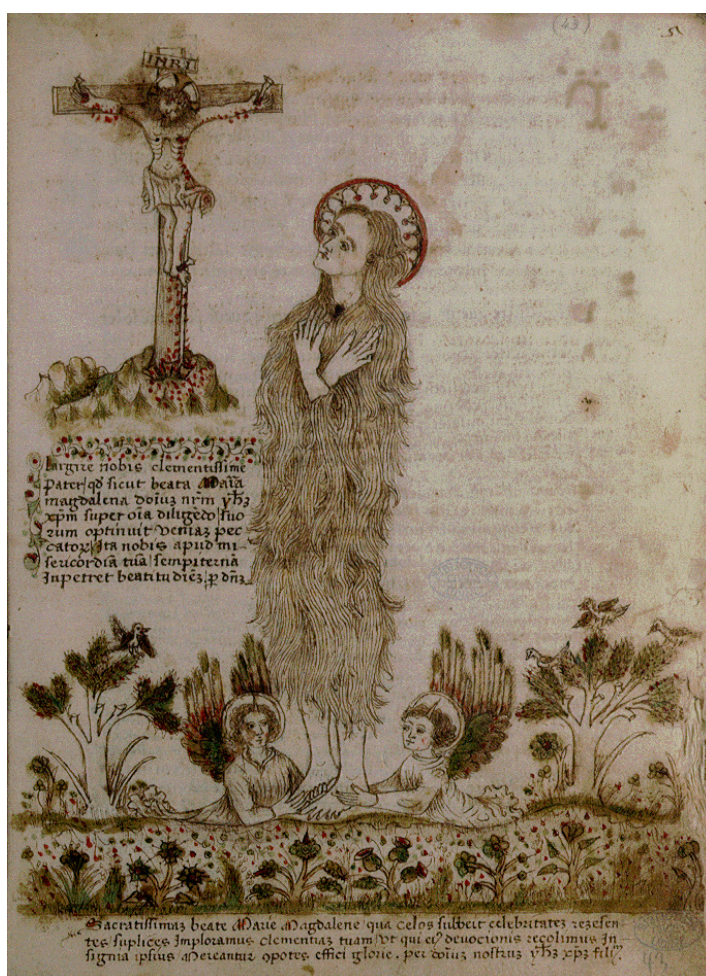 (43)
51
INRI
Largire nobis clementissime
Pater / qd sicut beata Maia
magdalena doiuz nrm yhz
xpm super oia diligedo / suo
rum optinuit veniaz pec
cator / Ita nobis apud mi-
sericordia tua / sempiterna
Inpetret beatitudiez / p dnz
Sacratissimaz beate Marie Magdalene / qua celos subbeit celebritatez rezesen-
tes suplices Imploramus clementiaz tuam / vt qui ei9 deuocionis recolimus In
signia ipsius Mereantur opotes effici glorie. per doiuz nostruz yhz xpz filiu